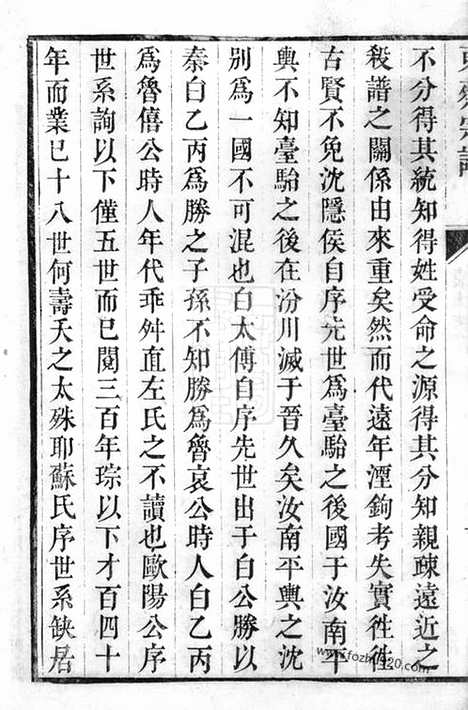 不分得其統知得姓受命之源得其分知親疎遠近之
殺譜之關係由來重矣然而代遠年湮鉤考失實徃徃
古賢不免沈隱侯自序先世爲臺駘之後國于汝南平
輿不知臺駘之後在汾川滅于晉久矣汝南平輿之沈
別爲一國不可混也白太傅自序先世出于白公勝以
秦白乙丙爲勝之子孫不知勝爲魯哀公時人白乙丙
爲魯僖公時人年代乖舛直左氏之不讀也歐陽公序
世系詢以下僅五世而已閱三百年琮以下才百四十
年而業已十八世何壽夭之太殊耶蘇氏序世系缺居